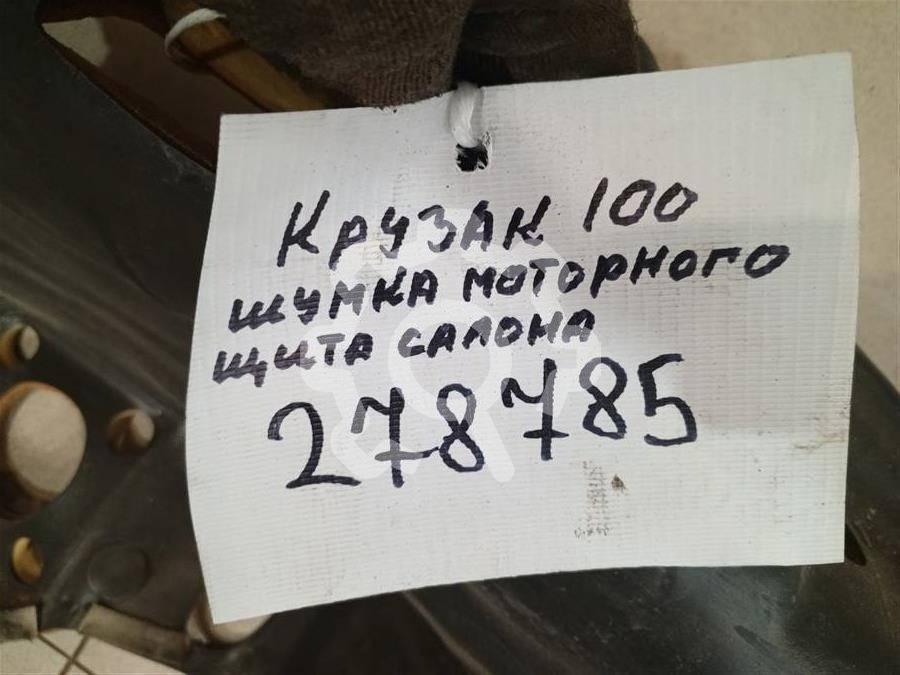 Крузак 100
шумка моторного
щита салона
278785